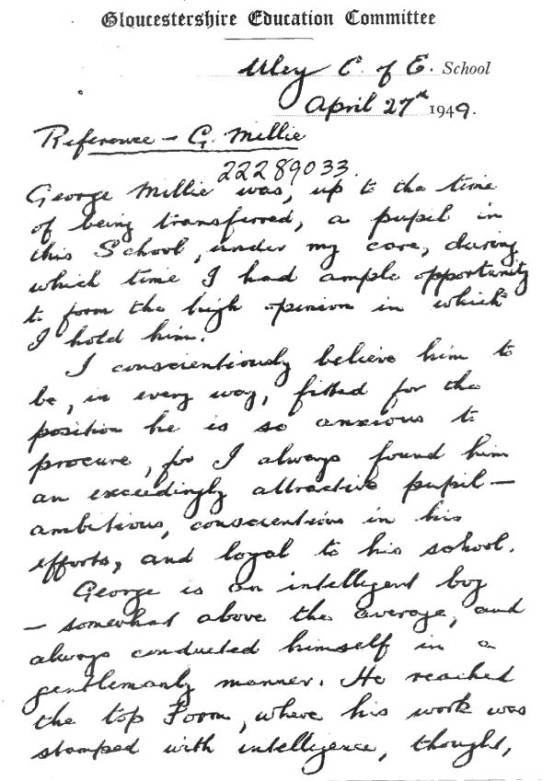 Gloucestershire Education Committee
Uley C. of E. School
April 27th 1949.
Reference - G. Millie
22289033.
George Millie was, up to the time
of being transferred, a pupil in
this School, under my care, during
which time I had ample opportunity
to form the high opinion in which
I hold him.
I conscientiously believe him to
be, in every way, fitted for the
position he is so anxious to
procure, for I always found him
an exceedingly attractive pupil —
ambitious, conscientious in his
efforts, and loyal to his school.
George is an intelligent boy
— somewhat above the average, and
always conducted himself in a
gentlemanly manner. He reached
the top Form, where his work was
stamped with intelligence, thought,